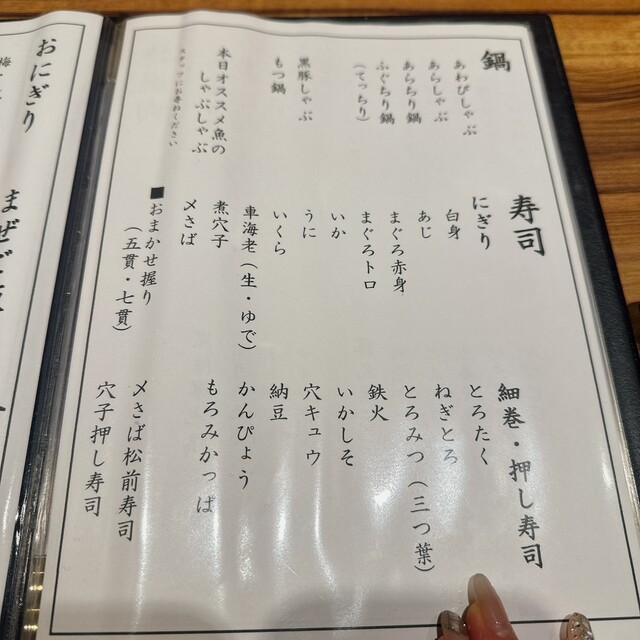 鍋
あわびしゃぶ
あらしゃぶ
あらちり鍋
ふぐちり鍋
(てっちり)
黒豚しゃぶ
もつ鍋
本日オススメ魚の
しゃぶしゃぶ
スタッフにお尋ねください
寿司
にぎり
白身
あじ
まぐろ赤身
まぐろトロ
いか
うに
いくら
車海老(生・ゆで)
煮穴子
〆さば
■おまかせ握り
(五貫・七貫)
細巻・押し寿司
とろたく
ねぎとろ
とろみつ(三つ葉)
鉄火
いかしそ
穴キュウ
納豆
かんぴょう
もろみかっぱ
〆さば松前寿司
穴子押し寿司
おにぎり
梅
まぜご